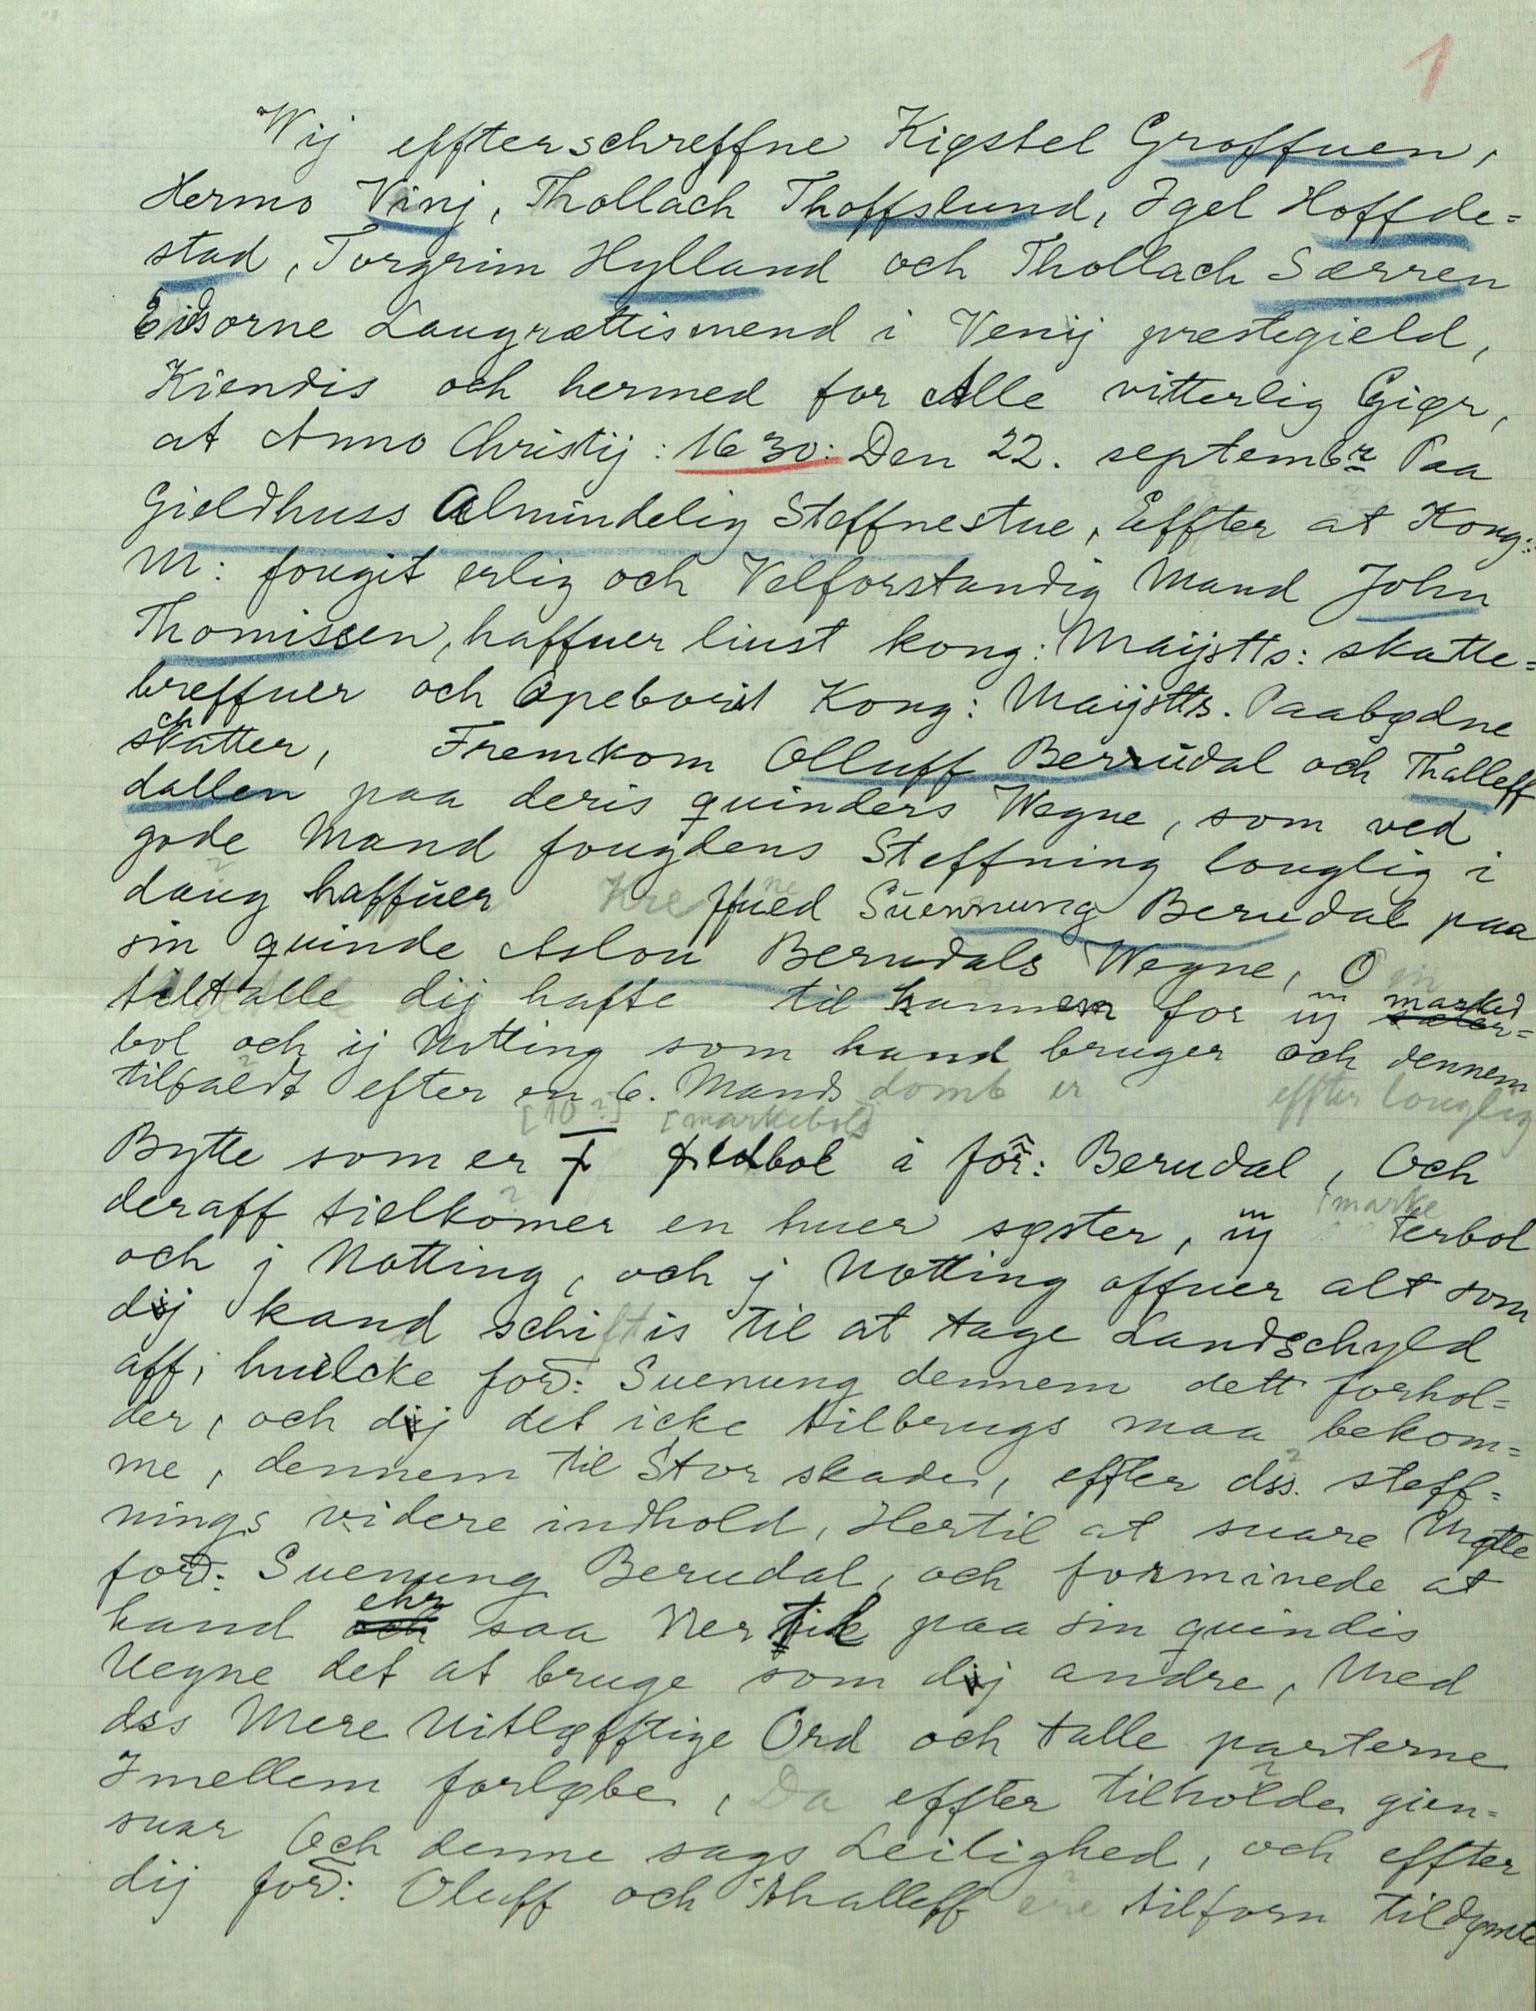 1
Wij effterschreffne Kigstel Groffuen,
Hermo Vinj, Thollach Thoffslund, Igel Hoffde=
stad, Torgrim Hylland och Thollach Særren
Eidsorne Laugrættismend i Venij prestegield,
Kiendis och hermed for Alle vitterlig Giør,
at Anno Christij: 1630: Den 22. septembr Paa
Gieldhuss Almindelig Steffnestue, Effter at Kong:
M: fougit erlig och Velforstandig Mand John
Thomissen, haffuer liust kong: Maijstts: skatte=
breffuer och Opeborit Kong: Maijstts. Paabødne
skatter, Fremkom Olluff Berudal och Thalleff
dallen paa deris quinders Wegne, som ved
gode Mand fougdens Steffning louglig i
daug haffuer Ffued Suennung Berudal paa
sin quinde Aslou Berudals Wegne, O
tiltalle dij hafte til hannem for iij marked
bol och ij Notting som hand bruger och dennem
tilfaldt efter en 6. Mands domb er effter louglig
[10?] [markebol]
Bytte som er bol i for: Berudal, Och
deraff tielkomer en huer søster, iij [marke terbol
och j Notting, och j Notting offuer alt som
dij kand schiftis til at tage Landschyld
aff, huilcke ford: Suenung dennem dett forhol=
der, och dij det icke tilbrugs maa bekom=
me, dennem til Stor skade, effter dss. steff=
nings videre indhold, Hertil at suare Møtte
ford: Suenung Berudal, och forminede at
hand ehr saa Nertik paa sin quindis
Vegne det at bruge som dij andre, Med
dss Mere Uitløfftige Ord och talle parterne
Imellem forløbe, Da effter tilholde gien=
suar Och denne sags Leilighed, och effter
dij ford: Oluff och Thalleff ere tilforn tildømte